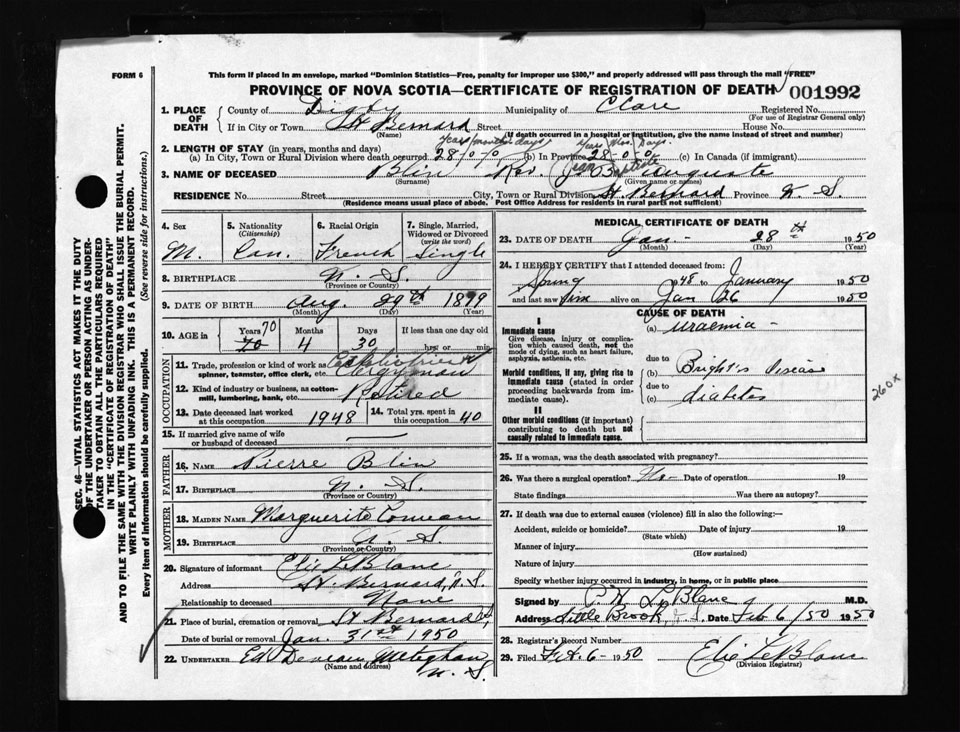 FORM 6
This form if placed in an envelope, marked "Dominion Statistics—Free, penalty for improper use $300," and properly addressed will pass through the mail "FREE"
PROVINCE OF NOVA SCOTIA—CERTIFICATE OF REGISTRATION OF DEATH 001992
1. PLACE OF DEATH County of Digby Municipality of Clare Registered No.
(For use of Registrar General only)
If in City or Town St Bernard Street House No.
(Name) (If death occurred in a hospital or institution, give the name instead of street and number)
2. LENGTH OF STAY (in years, months and days) Years/months/days Years Mos. Days.
(a) In City, Town or Rural Division where death occurred 28/0/0 (b) In Province 28-0-0 (c) In Canada (if immigrant)
3. NAME OF DECEASED Blin Rev. Jean Baptiste Auguste
(Surname) (Given name or names)
RESIDENCE No. Street City, Town or Rural Division St. Bernard Province N. S.
(Residence means usual place of abode. Post Office Address for residents in rural parts not sufficient)
4. Sex M.
5. Nationality (Citizenship) Can.
6. Racial Origin French
7. Single, Married, Widowed or Divorced (write the word) Single
8. BIRTHPLACE N. S.
(Province or Country)
9. DATE OF BIRTH Aug. 29th 1879
(Month) (Day) (Year)
10. AGE in Years 70 70 Months 4 Days 30 If less than one day old hrs. or min.
OCCUPATION
11. Trade, profession or kind of work as spinner, teamster, office clerk, etc. Clergyman
12. Kind of industry or business, as cotton-mill, lumbering, bank, etc. Retired
13. Date deceased last worked at this occupation 1948
14. Total yrs. spent in this occupation 40
15. If married give name of wife or husband of deceased —
FATHER
16. NAME Pierre Blin
17. BIRTHPLACE N. S.
(Province or Country)
MOTHER
18. MAIDEN NAME Marguerite Comeau
19. BIRTHPLACE N. S.
(Province or Country)
20. Signature of informant Elie LeBlanc
Address St. Bernard, N. S.
Relationship to deceased None
21. Place of burial, cremation or removal St Bernard
Date of burial or removal Jan. 31st 1950
22. UNDERTAKER Ed Deveau, Meteghan
(Name and address) N. S.
MEDICAL CERTIFICATE OF DEATH
23. DATE OF DEATH Jan.- 28th 1950
(Month) (Day) (Year)
24. I HEREBY CERTIFY that I attended deceased from:
Spring 1948 to January 1950
and last saw him alive on Jan 26 1950
CAUSE OF DEATH
I
Immediate cause
Give disease, injury or complication which caused death, not the mode of dying, such as heart failure, asphyxia, asthenia, etc.
(a) Uraemia -
due to
Morbid conditions, if any, giving rise to immediate cause (stated in order proceeding backwards from immediate cause).
(b) Bright's disease
due to
(c) diabetes
260x
II
Other morbid conditions (if important) contributing to death but not causally related to immediate cause.
25. If a woman, was the death associated with pregnancy?
26. Was there a surgical operation? No- Date of operation 19
State findings Was there an autopsy?
27. If death was due to external causes (violence) fill in also the following:
Accident, suicide or homicide? Date of injury 19
(State which)
Manner of injury
(How sustained)
Nature of injury
Specify whether injury occurred in industry, in home, or in public place
Signed by P. H. LeBlanc M.D.
Address Little Brook N. S. Date Feb 6/50 1950
28. Registrar's Record Number
29. Filed Feb. 6- 1950 Elie LeBlanc
(Division Registrar)
SEC. 46—VITAL STATISTICS ACT MAKES IT THE DUTY OF THE UNDERTAKER OR PERSON ACTING AS UNDERTAKER TO OBTAIN ALL THE PARTICULARS REQUIRED IN THE "CERTIFICATE OF REGISTRATION OF DEATH" AND TO FILE THE SAME WITH THE DIVISION REGISTRAR WHO SHALL ISSUE THE BURIAL PERMIT.
WRITE PLAINLY WITH UNFADING INK. THIS IS A PERMANENT RECORD.
Every item of information should be carefully supplied. (See reverse side for instructions.)